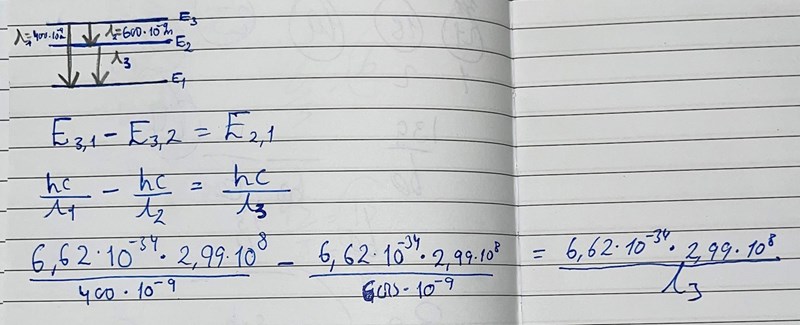 E₃
λ₁=400·10⁻⁹ λ₂=600·10⁻⁹m
E₂
λ₃
E₁
E₃,₁ - E₃,₂ = E₂,₁
hc/λ₁ - hc/λ₂ = hc/λ₃
6,62·10⁻³⁴·2,99·10⁸/400·10⁻⁹ - 6,62·10⁻³⁴·2,99·10⁸/600·10⁻⁹ = 6,62·10⁻³⁴·2,99·10⁸/λ₃